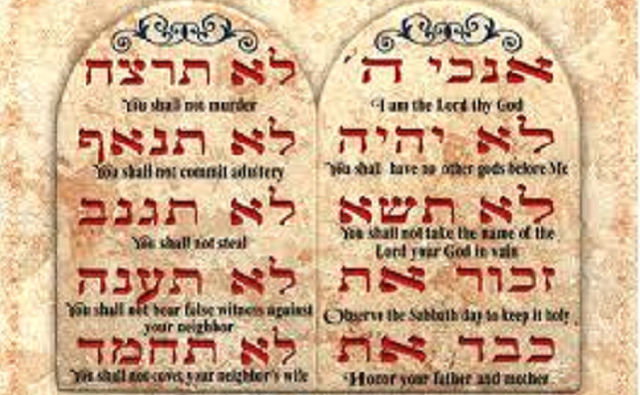 אנכי ה'
I am the Lord thy God
לא יהיה
You shall have no other gods before Me
לא תשא
You shall not take the name of the
Lord your God in vain
זכור את
Observe the Sabbath day to keep it holy
כבד את
Honor your father and mother
לא תרצח
You shall not murder
לא תנאף
You shall not commit adultery
לא תגנב
You shall not steal
לא תענה
You shall not bear false witness against
your neighbor
לא תחמד
You shall not covet your neighbor's wife